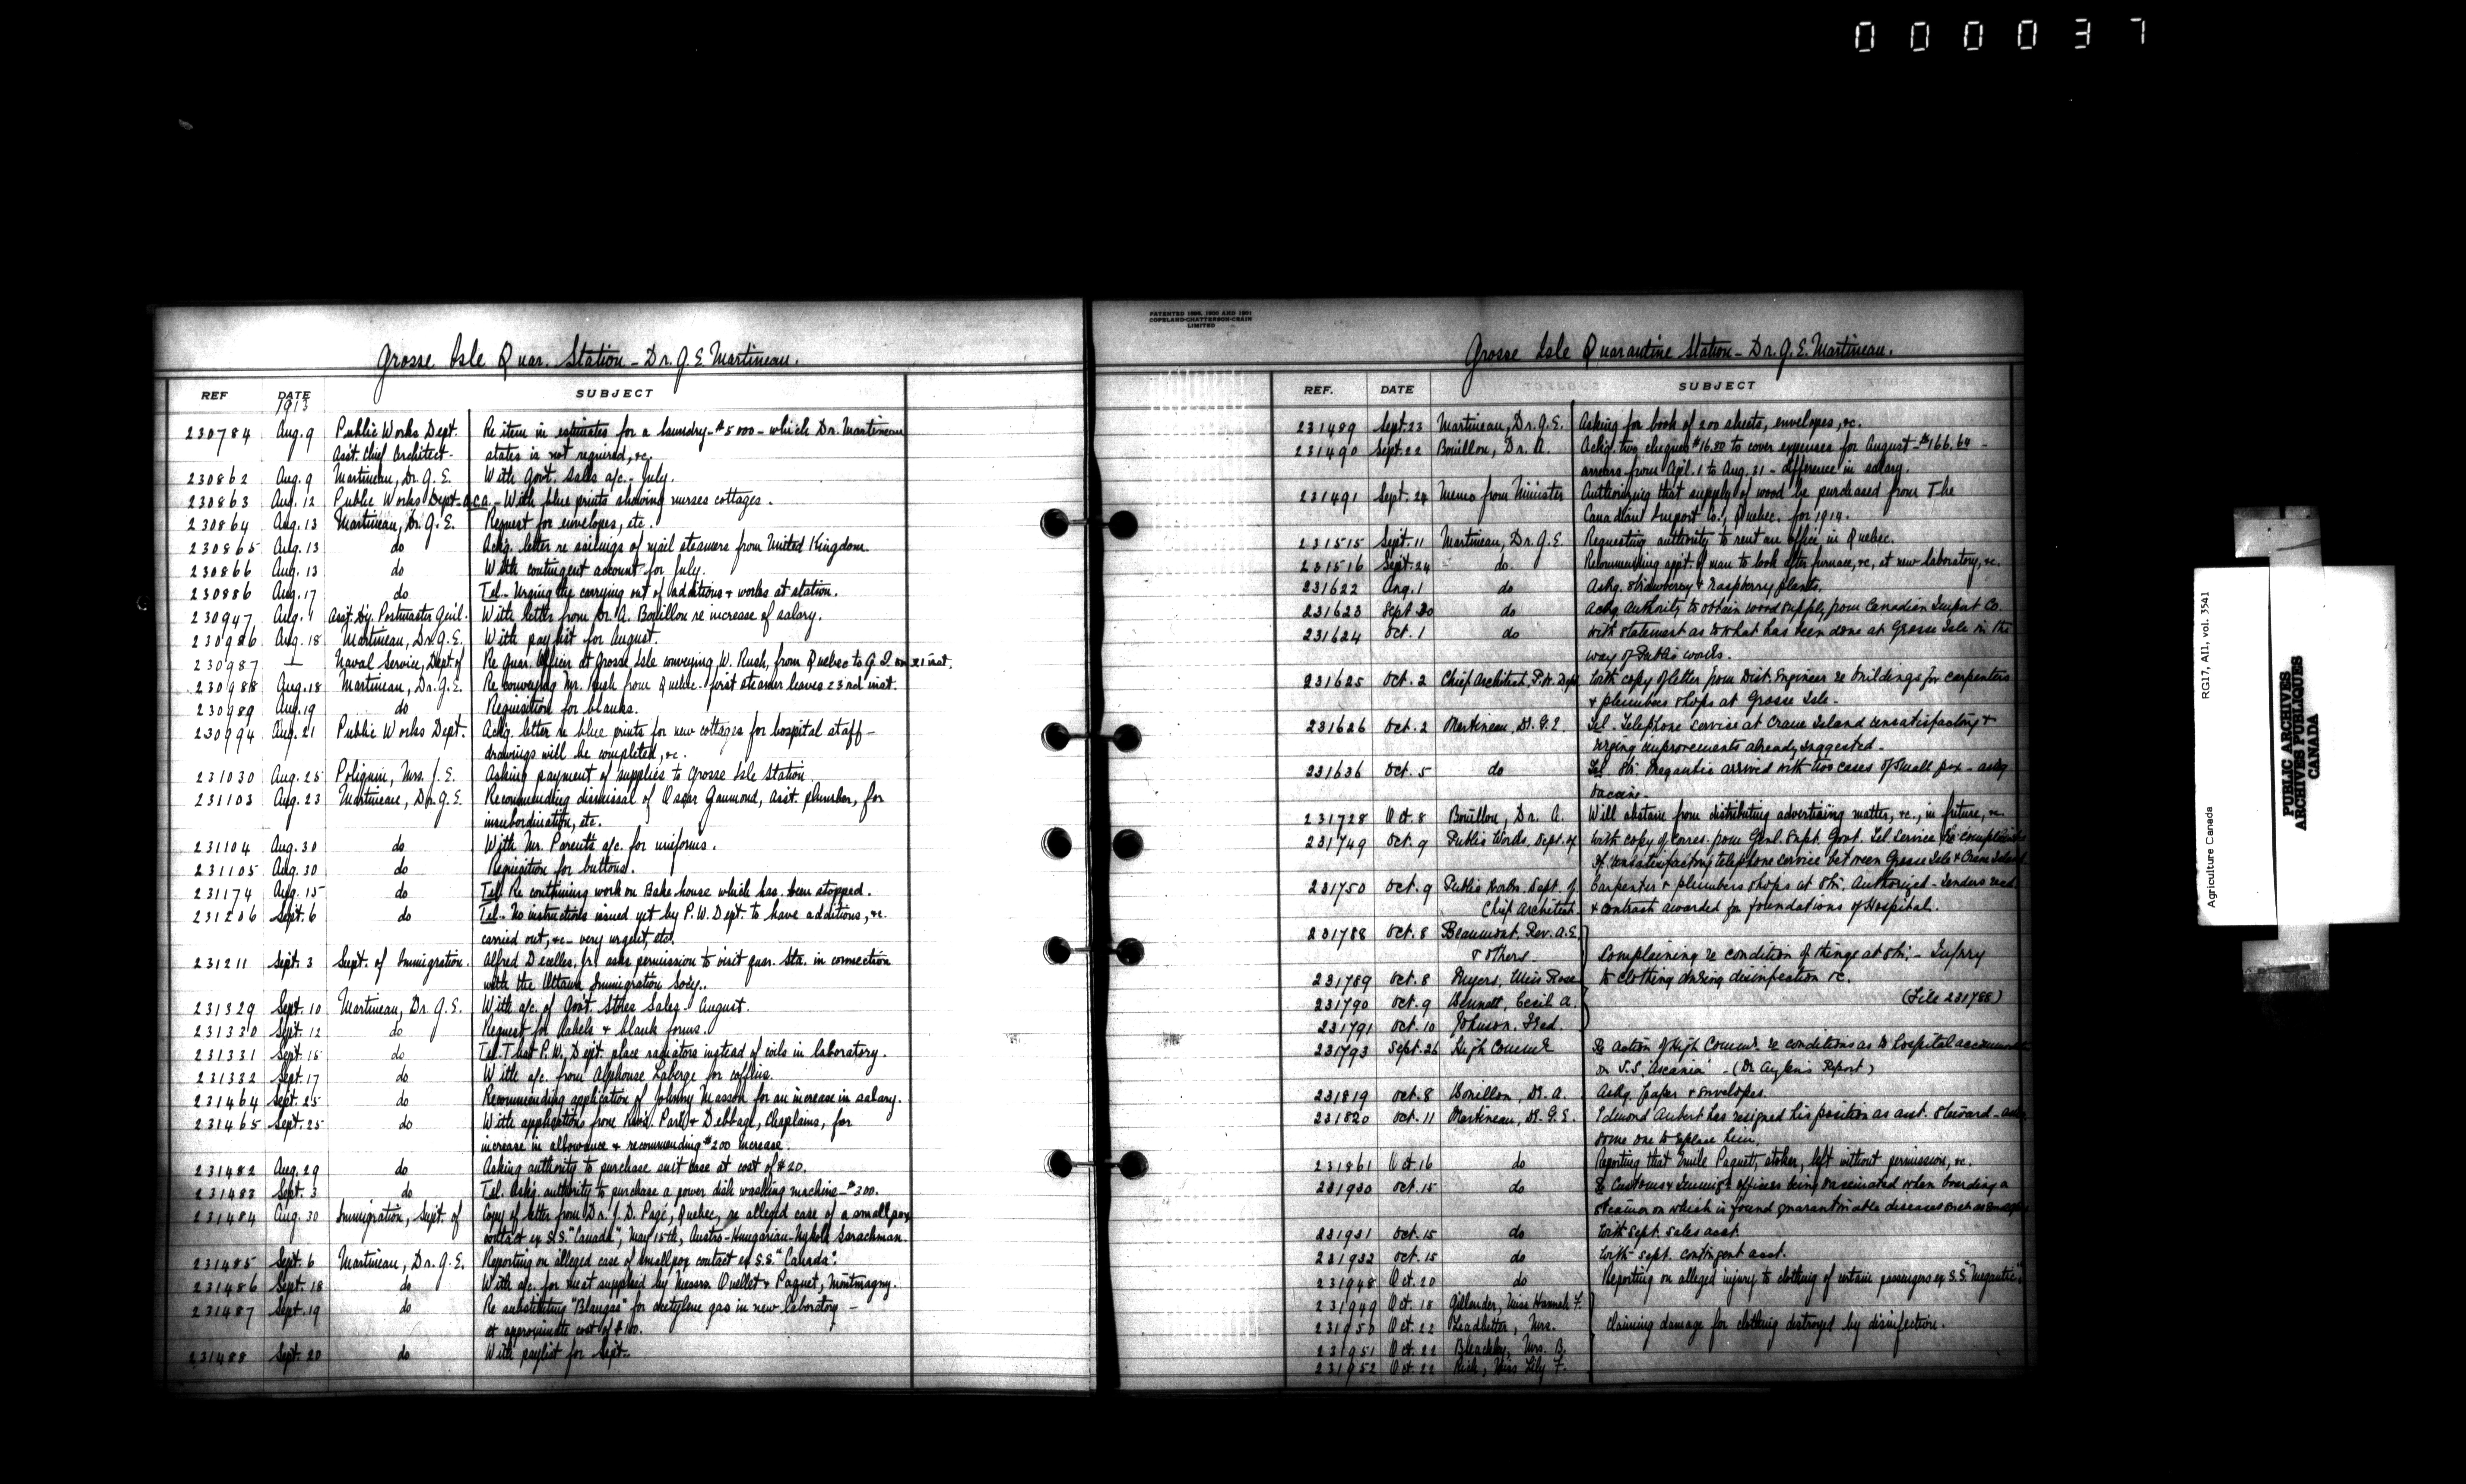 000037
Grosse Isle Quar. Station - Dr. G. E. Martineau.
REF DATE SUBJECT
1913
230784 Aug. 9 Public Works Dept. Re item in estimates for a laundry - $5000 - which Dr. Martineau
Asst. Chief Architect - states is not required, &c.
230862 Aug. 9 Martineau, Dr. G. E. With Govt. Sales a/c. - July.
230863 Aug. 12 Public Works Dept. - a.c.a. - With blue prints showing nurses cottages.
230864 Aug. 13 Martineau, Dr. G. E. Request for envelopes, etc.
230865 Aug. 13 do Ackg. letter re sailings of mail steamers from United Kingdom.
230866 Aug. 13 do With contingent account for July.
230886 Aug. 17 do Tel. - Urging the carrying out of additions & works at station.
230947 Aug. 4 Asst. Dy. Postmaster Genl. With letter from Dr. A. Bouillon re increase of salary.
230986 Aug. 18 Martineau, Dr. G. E. With pay list for August.
230987 — Naval Service, Dept. of Re Quar. Officer at Grosse Isle conveying W. Rush, from Quebec to G. I. on 21 inst.
230988 Aug. 18 Martineau, Dr. G. E. Re conveying Mr. Rush from Quebec - first steamer leaves 23rd inst.
230989 Aug. 19 do Requisition for blanks.
230994 Aug. 21 Public Works Dept. Ackg. letter re blue prints for new cottages for hospital staff -
drawings will be completed, &c.
231030 Aug. 25 Poliquin, Mrs. J. E. Asking payment of supplies to Grosse Isle Station.
231103 Aug. 23 Martineau, Dr. G. E. Recommending dismissal of Oscar Gaumond, asst. plumber, for
insubordination, etc.
231104 Aug. 30 do With Mr. Parent's a/c. for uniforms.
231105 Aug. 30 do Requisition for buttons.
231174 Aug. 15 do Tel. Re continuing work on Bake house which has been stopped.
231206 Sept. 6 do Tel. - No instructions issued yet by P. W. Dept. to have additions, &c.
carried out, &c - very urgent, etc.
231211 Sept. 3 Supt. of Immigration. Alfred Decelles, Jr. asks permission to visit quar. sta. in connection
with the Ottawa Immigration Socy..
231329 Sept. 10 Martineau, Dr. G. E. With a/c. of Gov't. Stores Sales - August.
231330 Sept. 12 do Request for labels & blank forms.
231331 Sept. 15 do Tel. That P. W. Dept. place radiators instead of coils in laboratory.
231332 Sept. 17 do With a/c. from Alphonse Laberge for coffins.
231464 Sept. 25 do Recommending application of Johnny Masson for an increase in salary.
231465 Sept. 25 do With applications from Revs. Park & Debbage, Chaplains, for
increase in allowance & recommending $200 increase.
231482 Aug. 29 do Asking authority to purchase suit case at cost of $20.
231483 Sept. 3 do Tel. Askg. authority to purchase a power dish washing machine - $300.
231484 Aug. 30 Immigration, Supt. of Copy of letter from Dr. J. D. Pagé, Quebec, re alleged case of a smallpox
contact ex S.S. "Canada", May 15th, Austro-Hungarian - Sarachman.
231485 Sept. 6 Martineau, Dr. G. E. Reporting on alleged case of smallpox contact ex S.S. "Canada".
231486 Sept. 18 do With a/c. for meat supplied by Messrs. Ouellet & Paquet, Montmagny.
231487 Sept. 19 do Re substituting "Blaugas" for acetylene gas in new laboratory -
at approximate cost of $100.
231488 Sept. 20 do With paylist for Sept.
PATENTED 1895, 1900 AND 1901
COPELAND-CHATTERSON-CRAIN
LIMITED
Grosse Isle Quarantine Station - Dr. G. E. Martineau.
REF. DATE SUBJECT
231489 Sept. 23 Martineau, Dr. G. E. Asking for book of 200 sheets, envelopes, &c.
231490 Sept. 22 Bouillon, Dr. A. Ackg. two cheques $16.80 to cover expenses for August - $166.64 -
arrears from Apl. 1 to Aug. 31 - difference in salary.
231491 Sept. 24 Memo from Minister Authorizing that supply of wood be purchased from The
Canadian Import Co., Quebec. for 1914.
231515 Sept. 11 Martineau, Dr. G. E. Requesting authority to rent an office in Quebec.
231516 Sept. 24 do Recommending appt. of man to look after furnace, &c, at new laboratory, &c.
231622 Aug. 1 do Ackg. strawberry & raspberry plants.
231623 Sept 30 do Ackg authority to obtain wood supply from Canadian Import Co.
231624 Oct. 1 do With statement as to what has been done at Grosse Isle in the
way of Public works.
231625 Oct. 2 Chief Architect, P.W. Dept With copy of letter from Dist. Engineer re buildings for carpenters
& plumbers shops at Grosse Isle -
231626 Oct. 2 Martineau, Dr. G. E. Tel. Telephone service at Crane Island unsatisfactory &
urging improvements already suggested -
231636 Oct. 5 do Tel Str. Megantic arrived with two cases of small pox - askg
vaccine -
231728 Oct. 8 Bouillon, Dr. A. Will abstain from distributing advertising matter, &c., in future, &c
231749 Oct. 9 Public Works, Dept. of With copy of corres. from Genl. Supt. Govt. Tel. Service re complaints
of unsatisfactory telephone service between Grosse Isle & Crane Island
231750 Oct. 9 Public Works Dept. of Carpenter & plumbers shops at Stn. authorized - tenders recd
Chief Architect. & contract awarded for foundations of Hospital.
231788 Oct. 8 Beaumont, Rev. A. E.
& others Complaining re condition of things at Stn. - Injury
231789 Oct. 8 Myers, Miss Rose to clothing during disinfection &c.
231790 Oct. 9 Bennett, Cecil A. (File 231788)
231791 Oct. 10 Johnson, Fred.
231793 Sept. 26 High Commr Re action of High Commr. re conditions as to hospital
on S.S. Ascania - (Dr Report)
231819 Oct. 8 Bouillon, Dr. A. Ackg. paper & envelopes.
231820 Oct. 11 Martineau, Dr. G. E. Edmond Aubert has resigned his position as asst. Steward -
some one to replace him.
231861 Oct. 16 do Reporting that Emile Paquet, stoker, left without permission, &c.
231930 Oct. 15 do Re Customs & Immig. officers being vaccinated when boarding a
steamer on which is found quarantinable diseases such as
231931 Oct. 15 do With Sept. sales acct.
231932 Oct. 15 do With Sept. contingent acct.
231948 Oct. 20 do Reporting on alleged injury to clothing of certain passengers ex S.S. "Megantic".
231949 Oct. 18 Gillender, Miss Hannah F.
231950 Oct. 22 Leadbetter, Mrs. Claiming damage for clothing destroyed by disinfection.
231951 Oct. 22 Bleackley, Mrs. B.
231952 Oct. 22 Rish, Miss Lily F.
Agriculture Canada RG17, AII, vol. 3541
PUBLIC ARCHIVES
ARCHIVES PUBLIQUES
CANADA